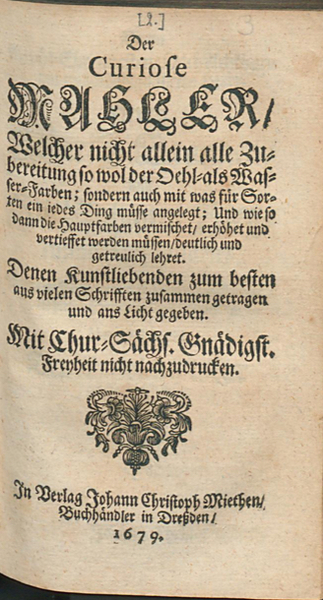 [2.]
Der
Curiose
MAHLER/
Welcher nicht allein alle Zu-
bereitung so wol der Oehl-als Was-
ser-Farben; sondern auch mit was für Sor-
ten ein iedes Ding müsse angelegt; Und wie so
dann die Hauptfarben vermischet/ erhöhet und
vertieffet werden müssen/deutlich und
getreulich lehret.
Denen Kunstliebenden zum besten
aus vielen Schrifften zusammen getragen
und ans Licht gegeben.
Mit Chur-Sächs. Gnädigst.
Freyheit nicht nachzudrucken.
In Verlag Johann Christoph Miethen/
Buchhändler in Dreßden/
1679.